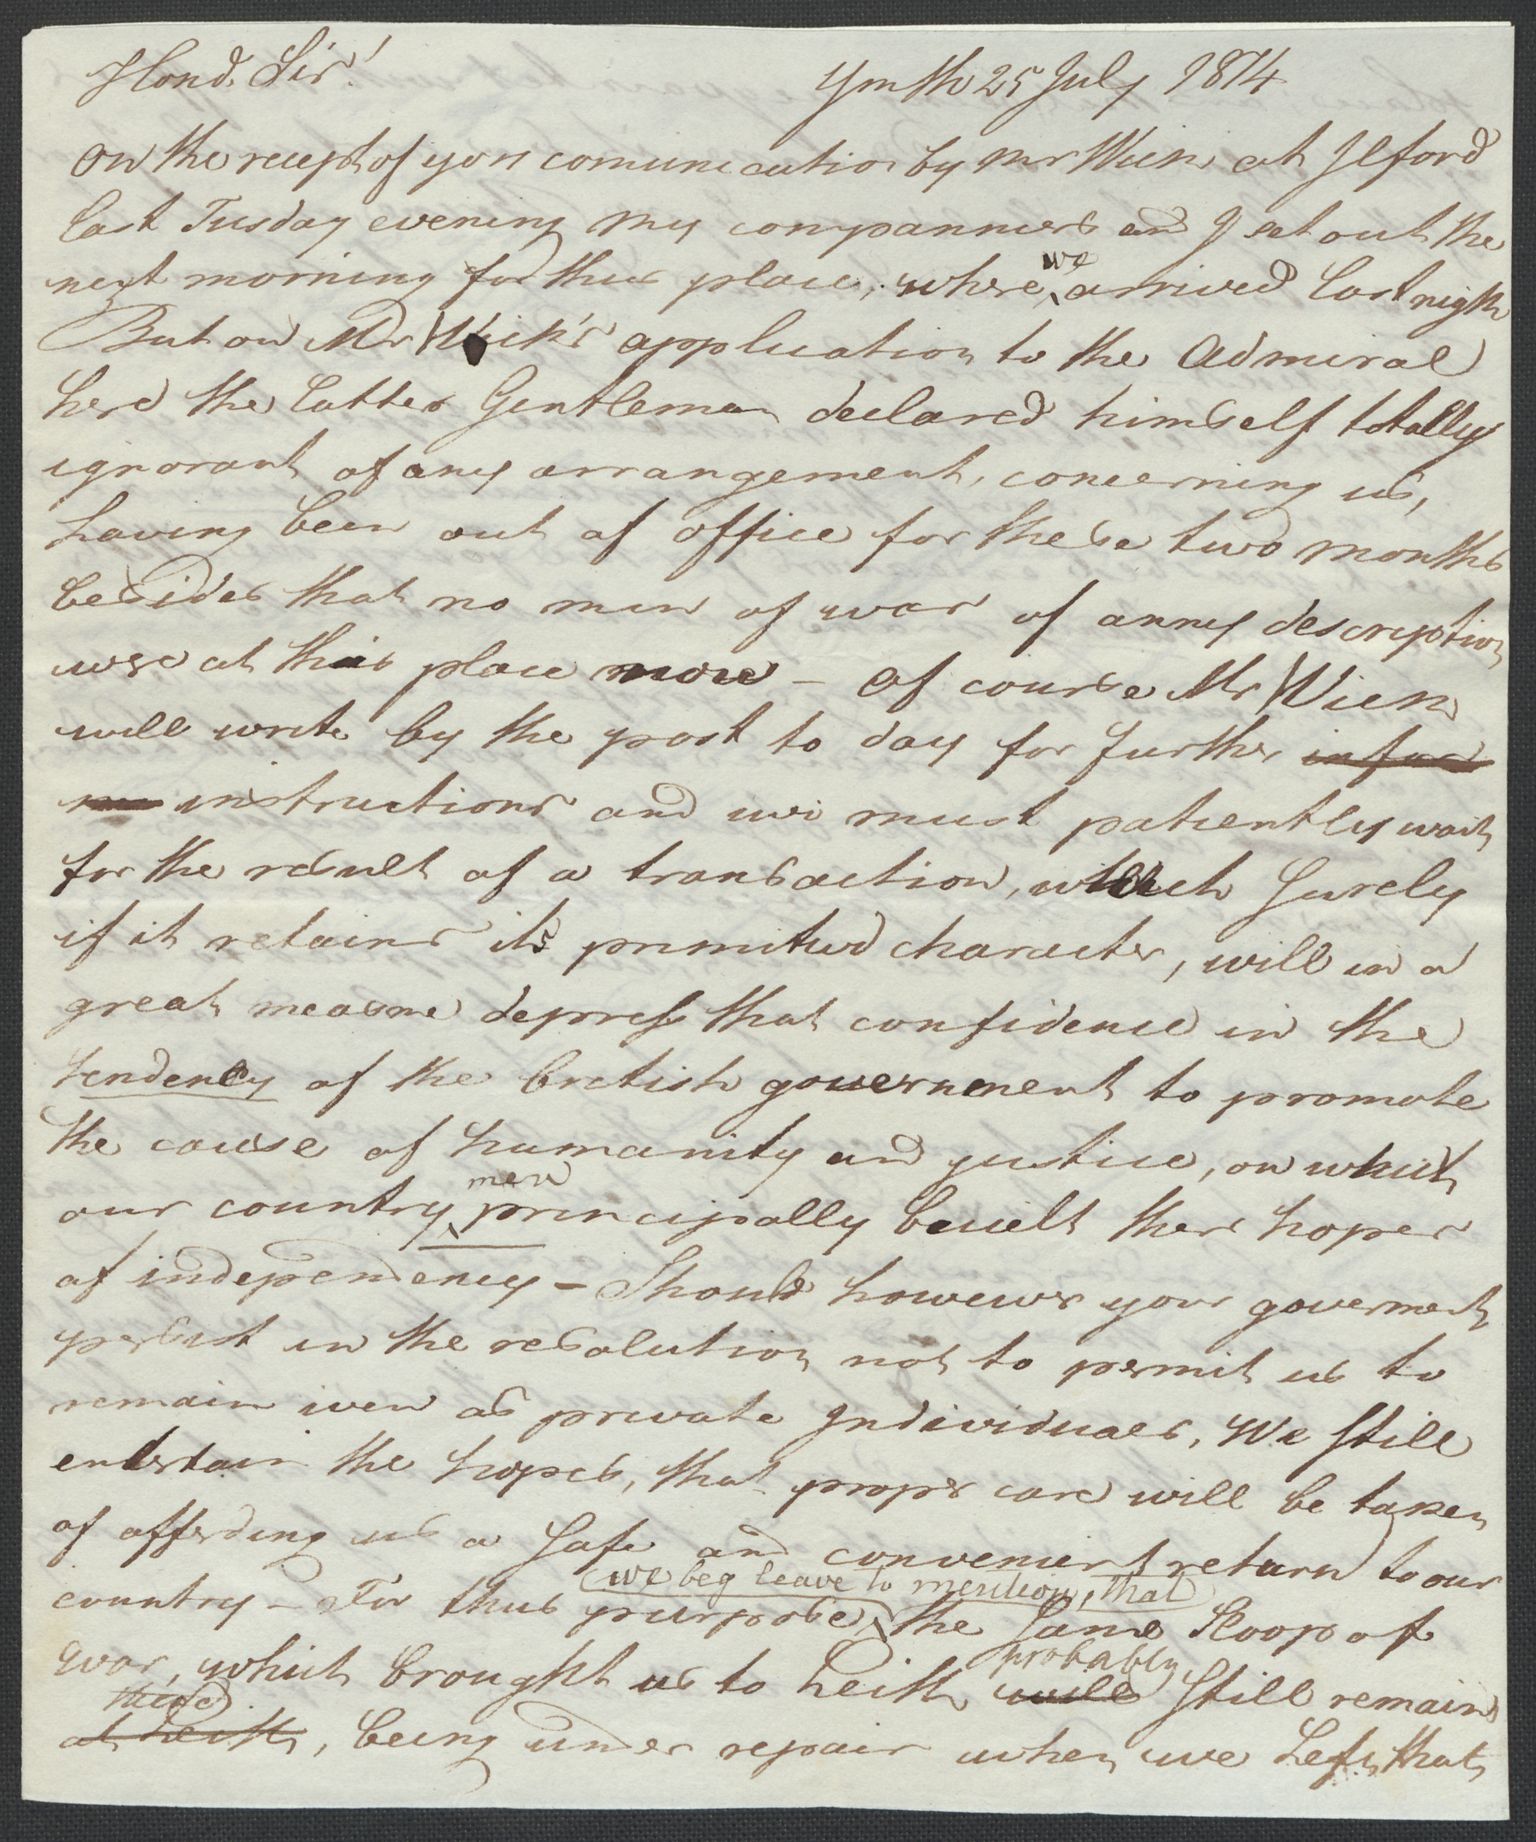 Hond. Sir!
Ymth 25 July 1814
On the recept of your comunication by Mr Wien at Ilford
last Tusday evening my companniers and I set out the
next morning for this place, where we arrived last night
But on Mr Wick's application to the Admiral
here the latter Gentleman declared himself totally
ignorant of any arrangement, concerning us,
having been out of office for these two months
besides that no men of war of anny description
were at this place now – Of course Mr Wien
will write by the post to day for further infor
m instructions and we must patiently wait
for the result of a transaction, which surely
if it retains its primitive character, will in a
great measure depress that confidence in the
tendency of the British government to promote
the cause of humanity and justice, on which
our country men principally beuilt ther hopes
of independency – Should however your goverment
persist in the resolution not to permit us to
remain iven as private Individuals, We still
entertain the hopes, that proper care will be taken
of afferding us a safe and convenient return to our
country – For this purpose, we beg leave to mention, that the same Sloop of
war, which brought us to Leith will probably still remain
at Leith, there, being under repair when we left that